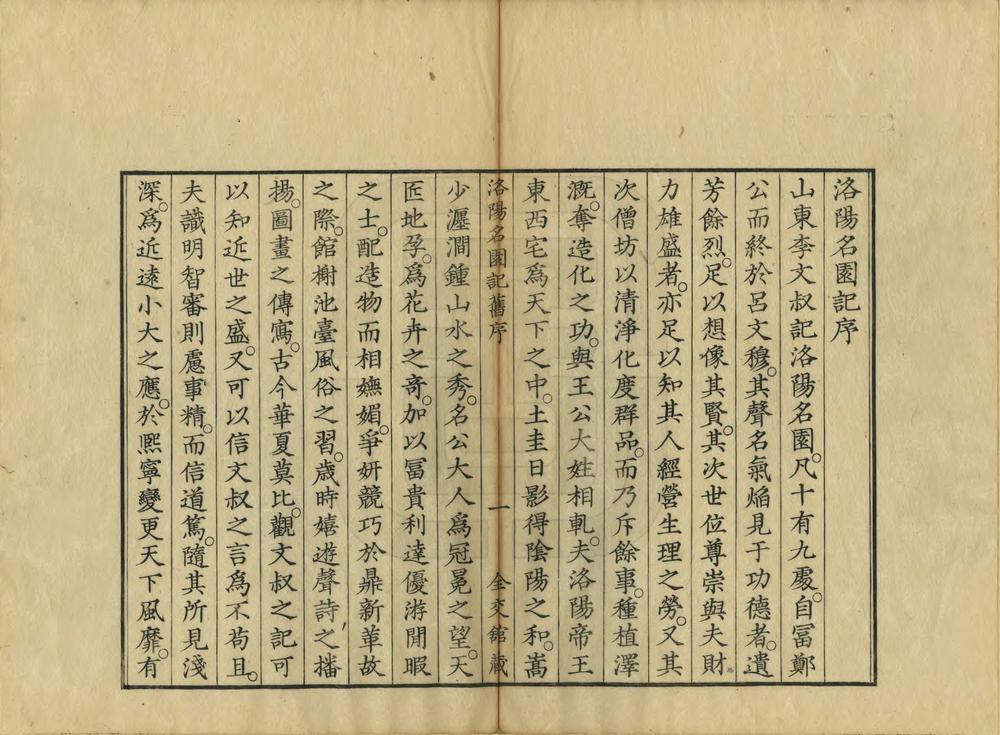 洛陽名園記序
山東李文叔記洛陽名園。凡十有九處。自冨鄭
公而終於呂文穆。其聲名氣焰見于功德者。遺
芳餘烈。足以想像其賢。其次世位尊崇與夫財
力雄盛者。亦足以知其人經營生理之勞。又其
次僧坊以清淨化度群品。而乃斥餘事。種植澤
溉。奪造化之功。與王公大姓相軋。夫洛陽帝王
東西宅爲天下之中。土圭日影得陰陽之和。嵩
洛陽名園記舊序 一 全交館藏
少瀍澗鍾山水之秀。名公大人爲冠冕之望。天
匠地孕。爲花卉之奇。加以冨貴利達優游閒暇
之士。配造物而相嫵媚。爭妍競巧於鼎新革故
之際。館榭池臺風俗之習。歲時嬉遊聲詩之播
揚。圖畫之傳寫。古今華夏莫比。觀文叔之記可
以知近世之盛。又可以信文叔之言爲不苟且。
夫識明智審則慮事精。而信道篤。隨其所見淺
深。爲近遠小大之應。於熙寧變更天下風靡。有